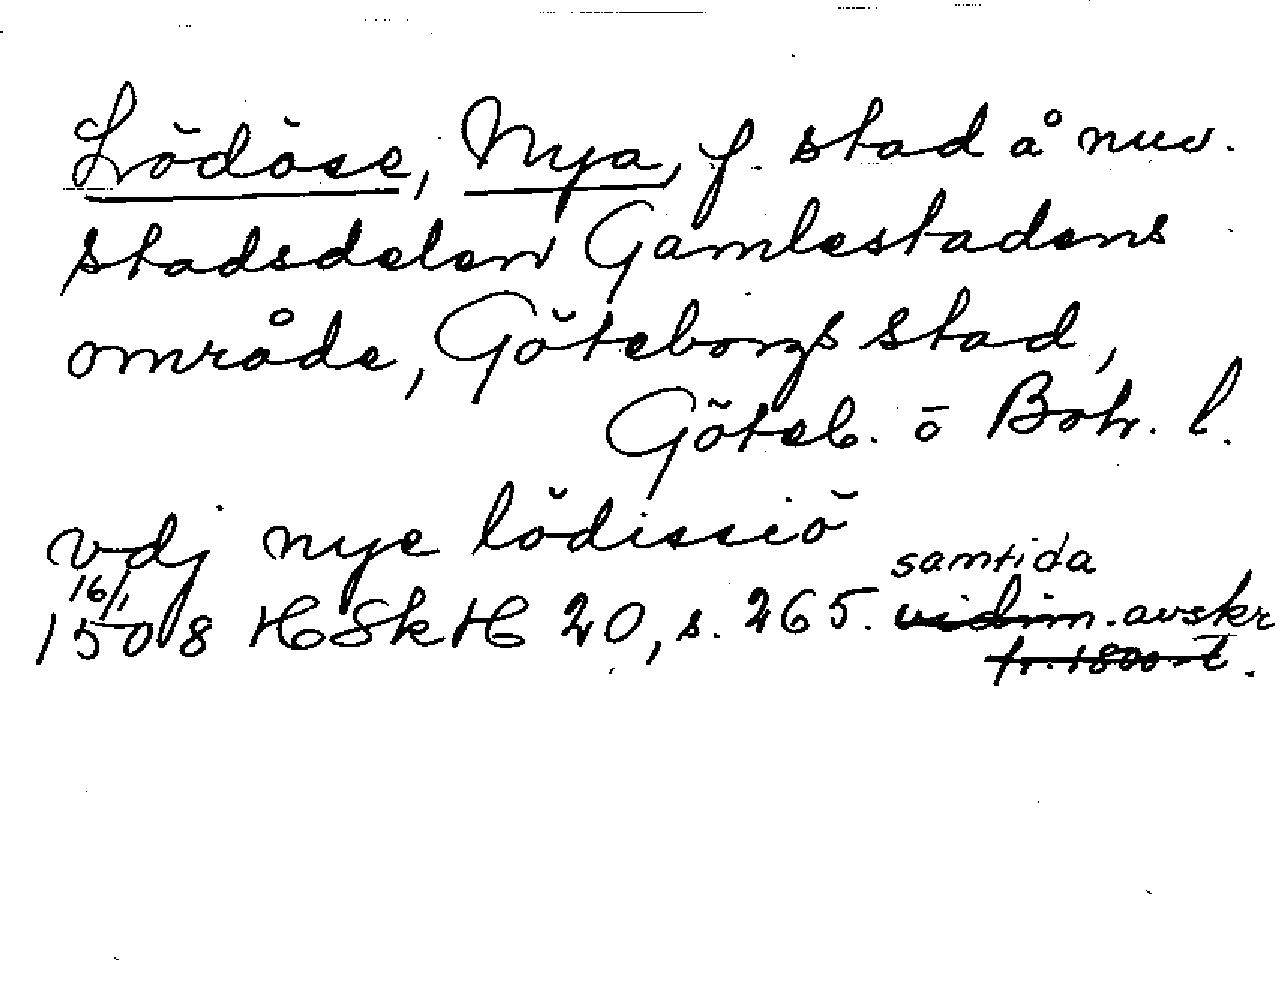 Lödöse, Nya, f. stad å nuv.
stadsdelen Gamlestadens
område, Göteborgs stad,
Göteb. o Boh. l.
vdj nye lödissiö
samtida
16/1
1508 HSkH 20, s. 265. vidim. avskr
fr. 1800-t.